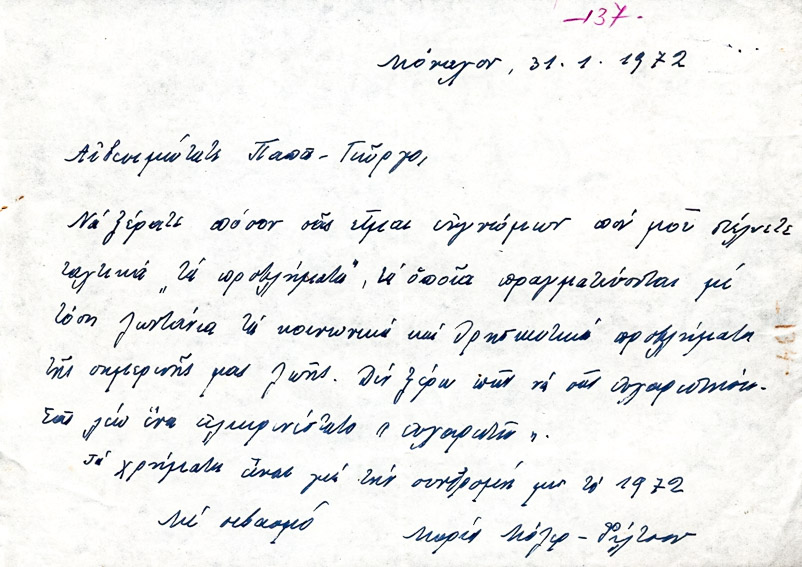 -137.
Μόναχον, 31.1.1972
Αἰδεσιμώτατε Παπα-Γιῶργο,
Νά ξέρατε πόσον σᾶς εἶμαι εὐγνώμων πού μοῦ στέλνετε
τακτικά „τά προβλήματα", τά ὁποῖα πραγματεύονται μέ
τόση ζωντάνια τά κοινωνικά καί θρησκευτικά προβλήματα
τῆς σημερινῆς μας ζωῆς. Δέν ξέρω πῶς νά σᾶς εὐχαριστήσω.
Σᾶς λέω ἕνα εἰλικρινέστατο „εὐχαριστῶ".
Τά χρήματα εἶναι γιά τήν συνδρομή μου τό 1972
Μέ σεβασμό
Μαρία